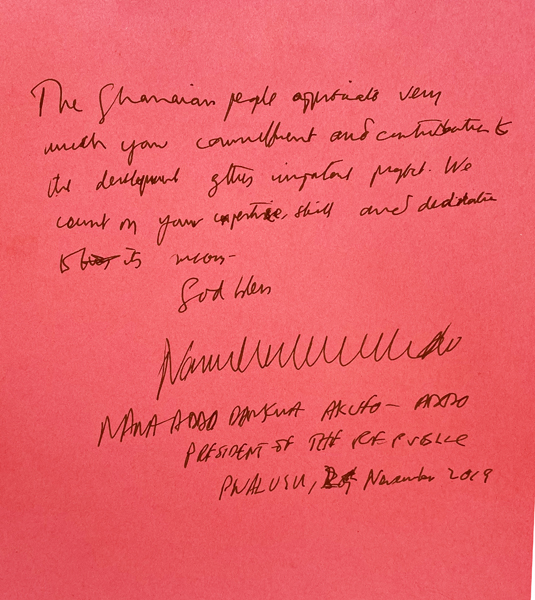 The Ghanaian people appreciate very
much your commitment and contribution to
the development of this important project. We
count on your expertise, skill and dedication
to its
God bless
NANA ADDO DANKWA AKUFO-ADDO
PRESIDENT OF THE REPUBLIC
PWALUGU, November 2019